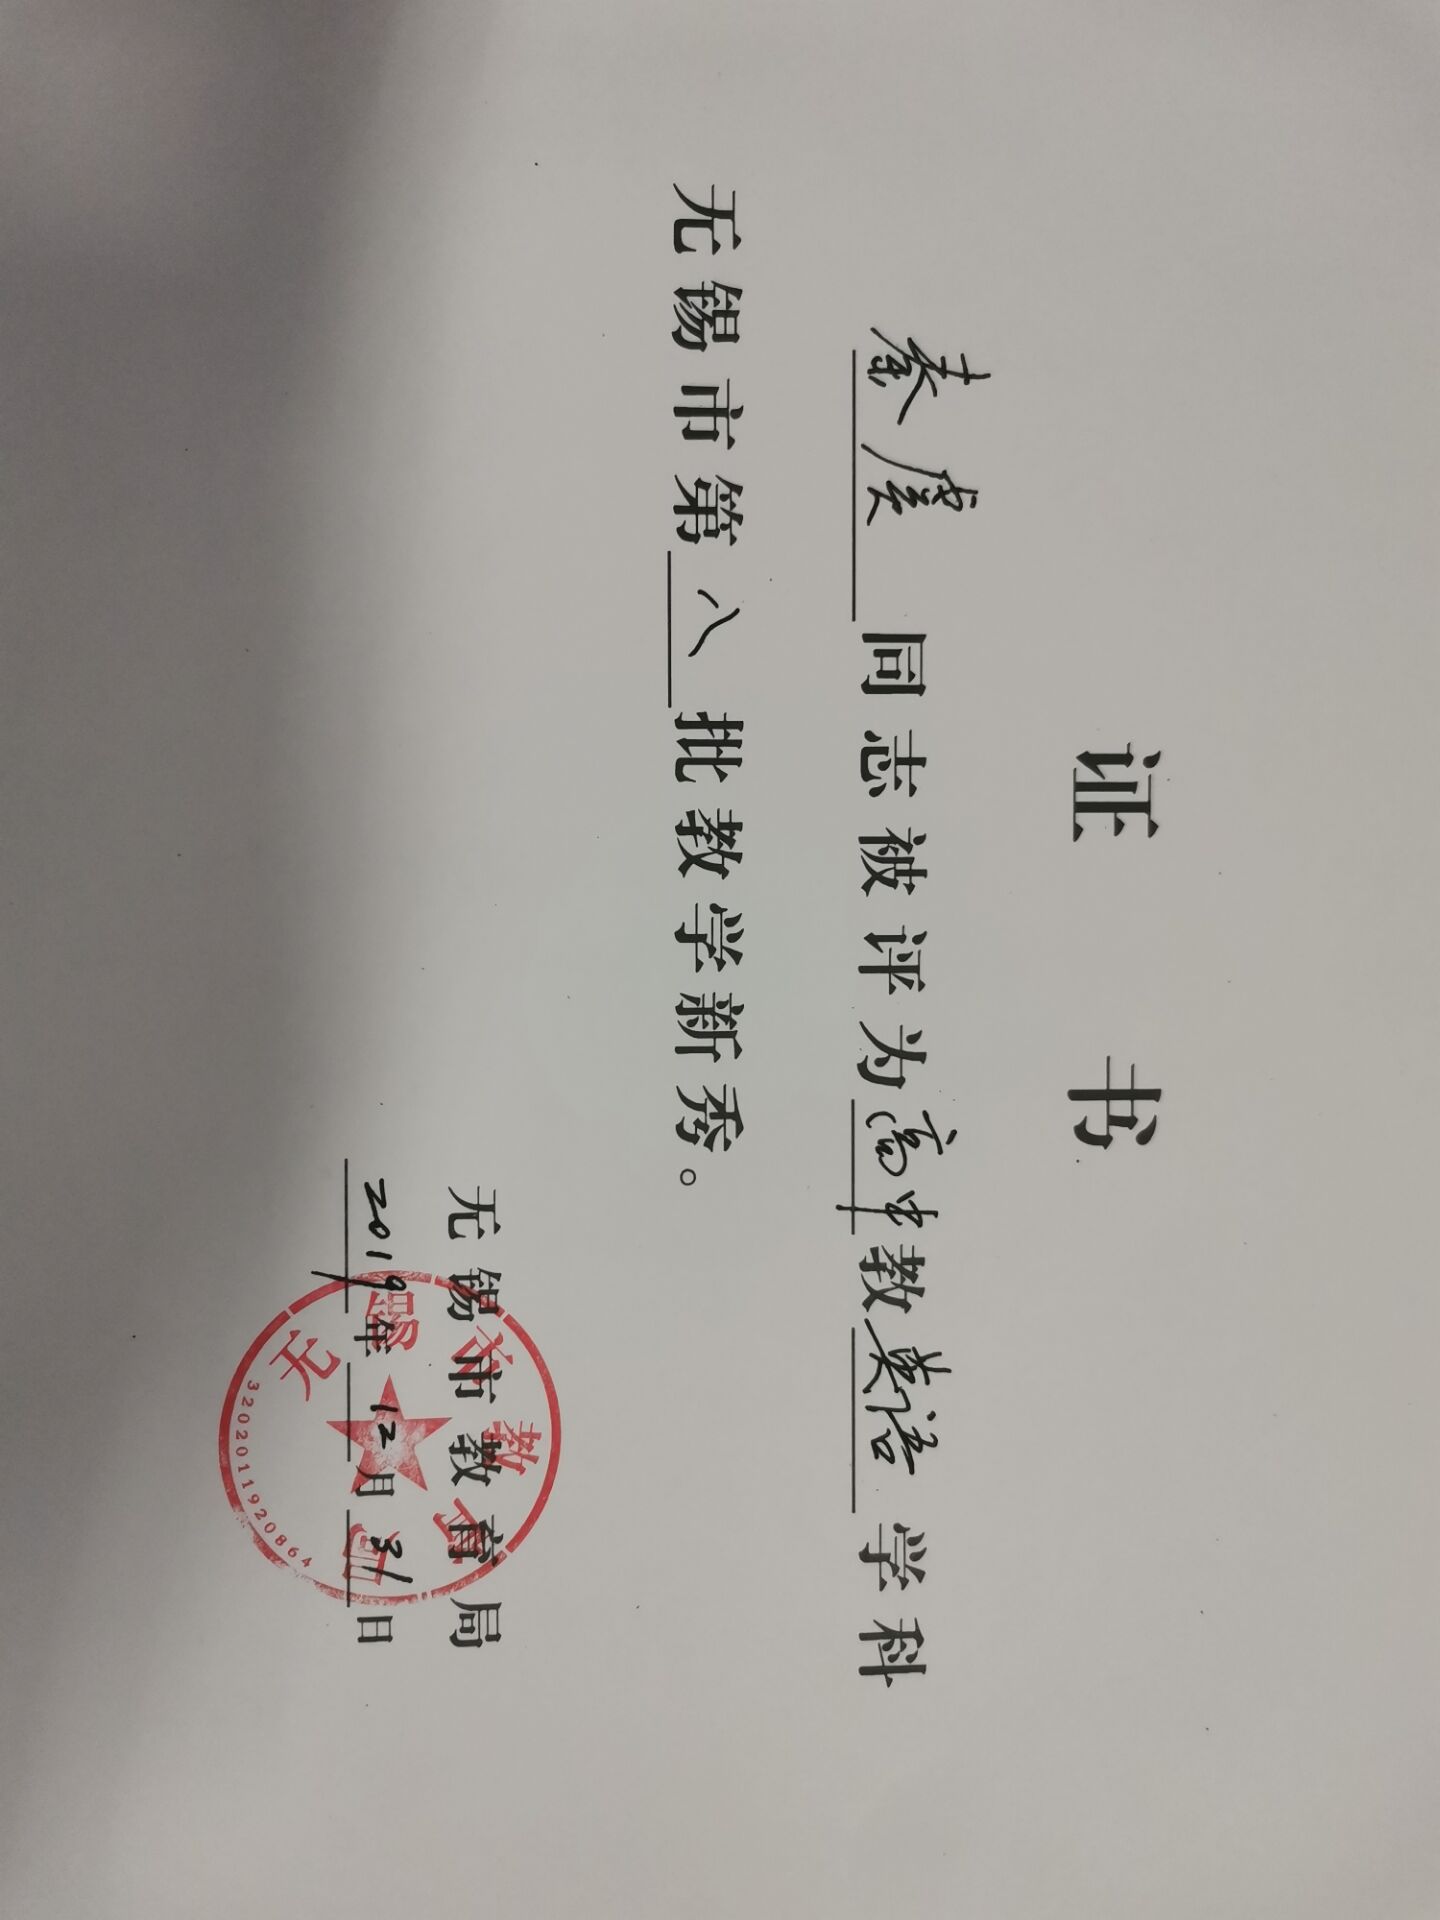 证 书
秦虞同志被评为高中教英语学科
无锡市第八批教学新秀。
无锡市教育局
2019年12月31日
无锡市教育局
3202011920864